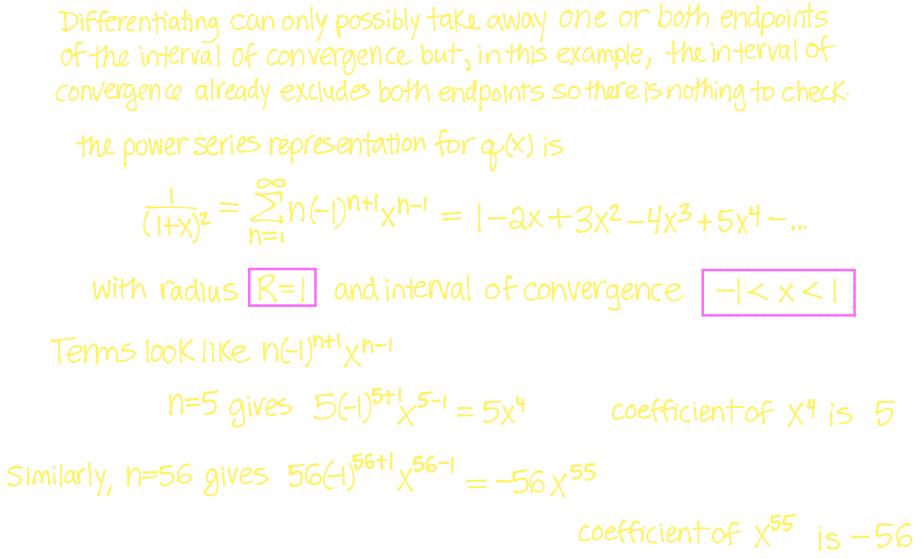 Differentiating can only possibly take away one or both endpoints
of the interval of convergence but, in this example, the interval of
convergence already excludes both endpoints so there is nothing to check.
the power series representation for q(x) is
1/(1+x)² = ∑_{n=1}^{∞} n(-1)^{n+1} x^{n-1} = 1-2x+3x²-4x³+5x⁴-...
with radius R=1 and interval of convergence -1<x<1
Terms look like n(-1)^{n+1} x^{n-1}
n=5 gives 5(-1)^{5+1} x^{5-1} = 5x⁴ coefficient of x⁴ is 5
Similarly, n=56 gives 56(-1)^{56+1} x^{56-1} = -56x^{55}
coefficient of x^{55} is -56